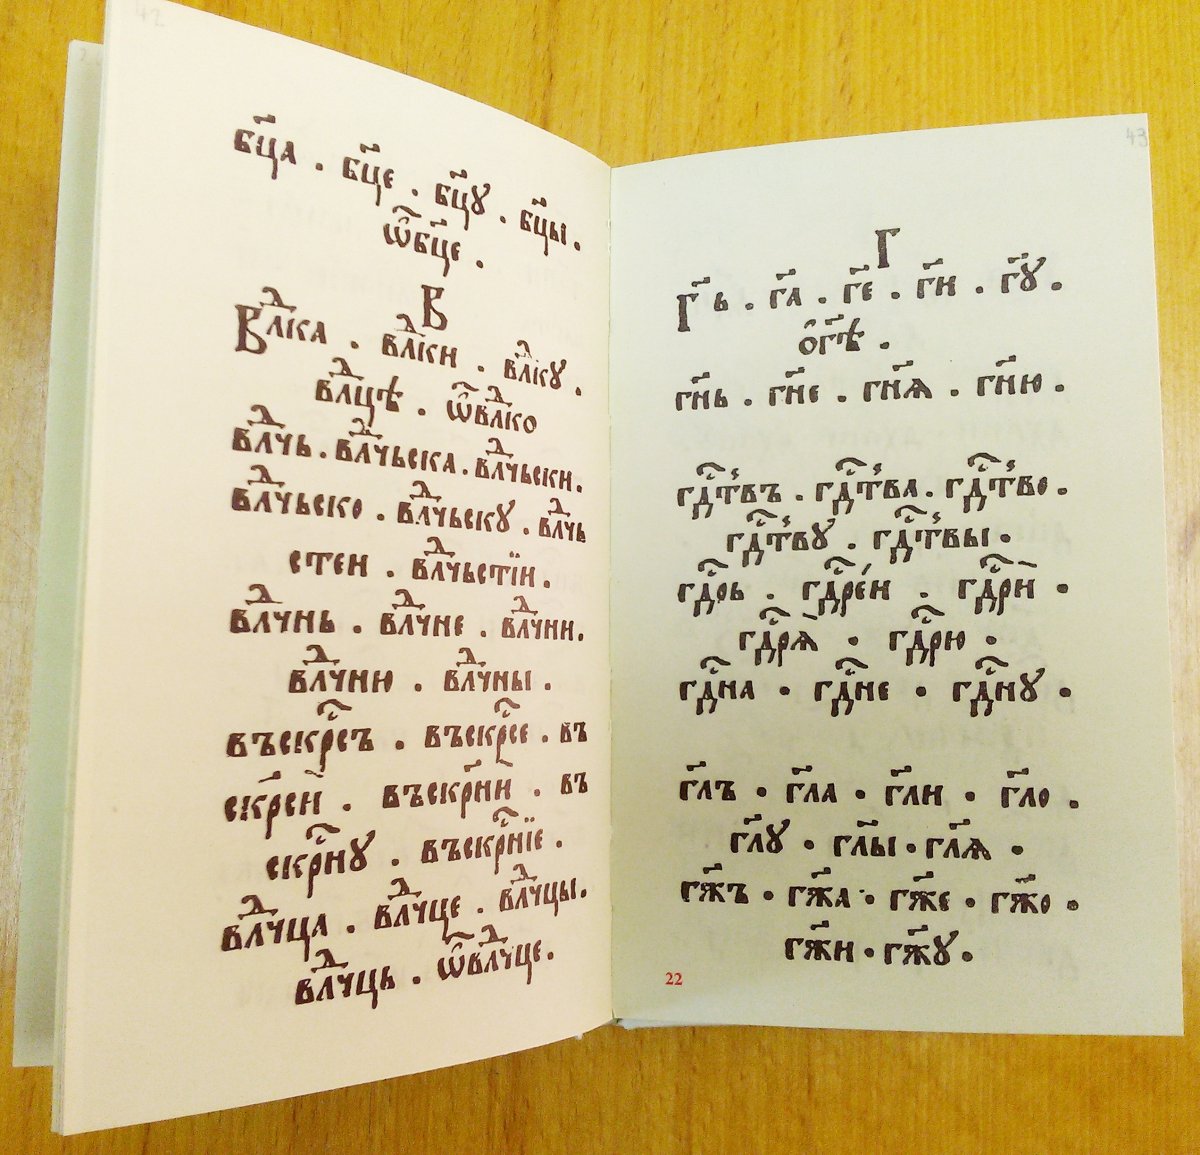 42
бц҃а . бц҃е . бц҃ꙋ . бц҃ы .
ѡ҆бц҃е .
В
Влⷣка . влⷣки . влⷣкꙋ .
влⷣцѣ . ѡ҆влⷣко
влⷣчь . влⷣчьска . влⷣчьски .
влⷣчьско . влⷣчьскꙋ . влⷣчь
стеи . влⷣчьстїи .
влⷣчнь . влⷣчне . влⷣчни .
влⷣчню . влⷣчны .
въскрⷭ҇съ . въскрⷭ҇се . въ
скр҃сен̀ . въскр҃нїи̇ . въ
скрⷭ҇нꙋ . въскрⷭ҇нїе .
влⷣчца . влⷣчце . влⷣчцы .
влⷣчць . ѡ҆влⷣчце .
43
Г
Г҃ь . г҃а . г҃е . г҃и . г҃ꙋ .
ѻ҆г҃ѣ .
гн҃ь . гн҃е . гн҃ѧ . гн҃ю .
гдⷭ҇твъ . гдⷭ҇тва . гдⷭ҇тво .
гдⷭ҇твꙋ . гдⷭ҇твы .
гдⷭ҇рь . гдⷭ҇ре́и . гдⷭ҇рѝ .
гдⷭ҇рѧ̀ . гдⷭ҇рю .
гдⷭ҇на . гдⷭ҇не . гдⷭ҇нꙋ .
гл҃ъ . гл҃а . гл҃и . гл҃о .
гл҃ꙋ . гл҃ы . гл҃ѧ .
гж҃ъ . гж҃а . гж҃е . гж҃о .
гж҃и . гж҃ꙋ .
22